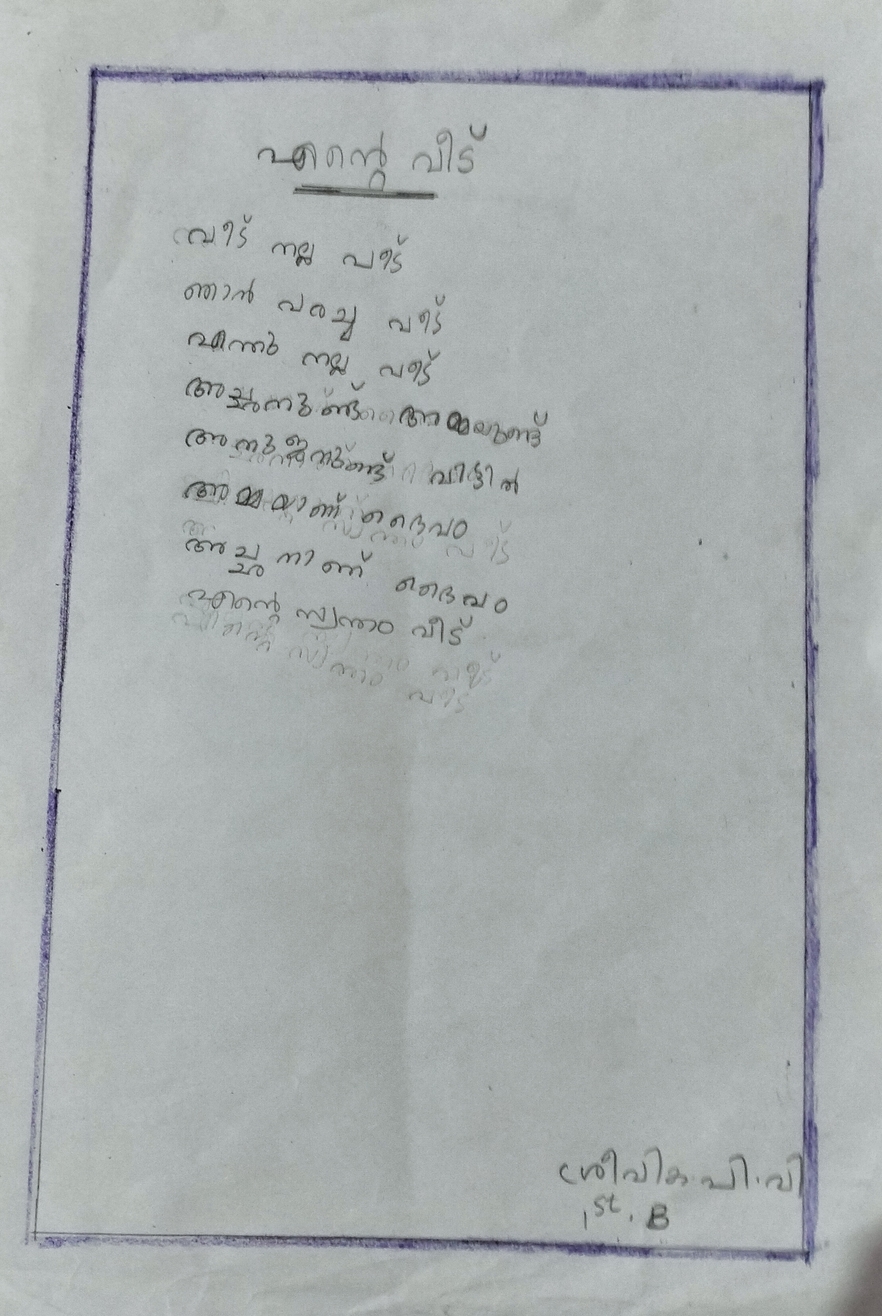 എന്റെ വീട്
വീട് നല്ല വീട്
ഞാൻ വരച്ച വീട്
എന്തു നല്ല വീട്
അച്ഛനുണ്ട് അമ്മയുണ്ട്
അനുജനുണ്ട് വീട്ടിൽ
അമ്മയാണ് ദൈവം
അച്ഛനാണ് ദൈവം
എന്റെ സ്വന്തം വീട്
ശ്രീവിക.പി.വി
1st. B